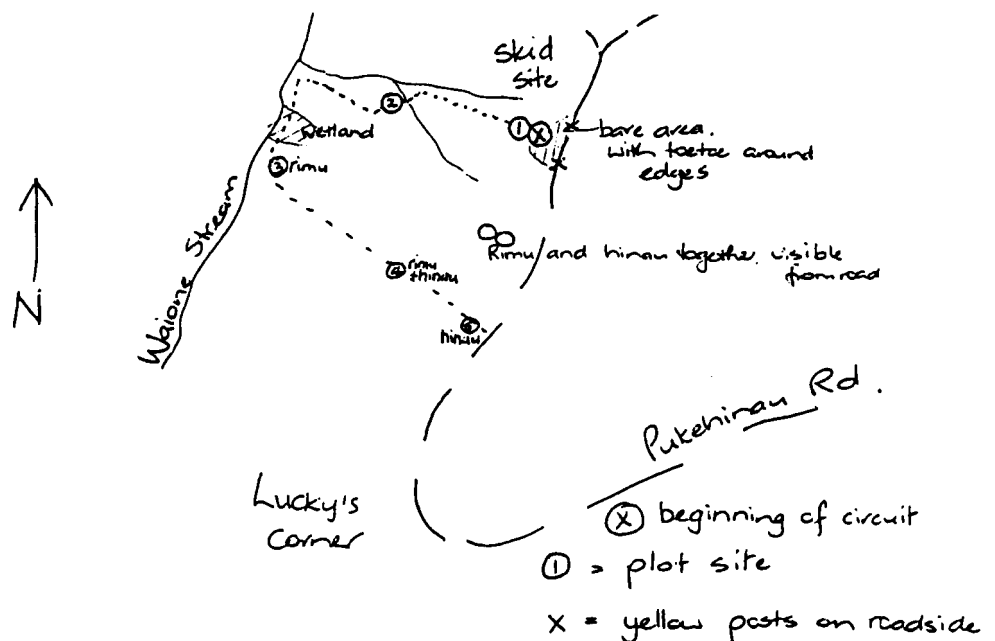 skid
site
②
wetland
① ⓧ
x
bare area.
with toetoe around
edges
③ rimu
Waione Stream
N
Rimu and hinau together. visible
from road
④ rimu
+hinau
⑤
hinau
Pukehinau Rd.
Lucky's
Corner
ⓧ beginning of circuit
① = plot site
x = yellow posts on roadside